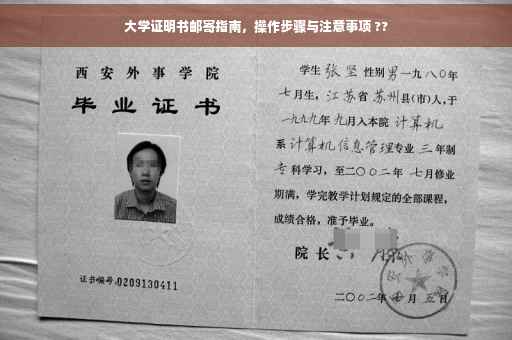 大学证明书邮寄指南，操作步骤与注意事项 ??
西安外事学院
毕业证书
证书编号:0209130411
学生 张坚 性别 男 一九八〇年
七月生，江苏省 苏州县(市)人，于
一九九九年 九月入本院 计算机
系 计算机信息管理专业 三 年制
专科学习，至二〇〇二年 七月修业
期满，学完教学计划规定的全部课程，
成绩合格，准予毕业。
院长
二〇〇二年 七月 五日